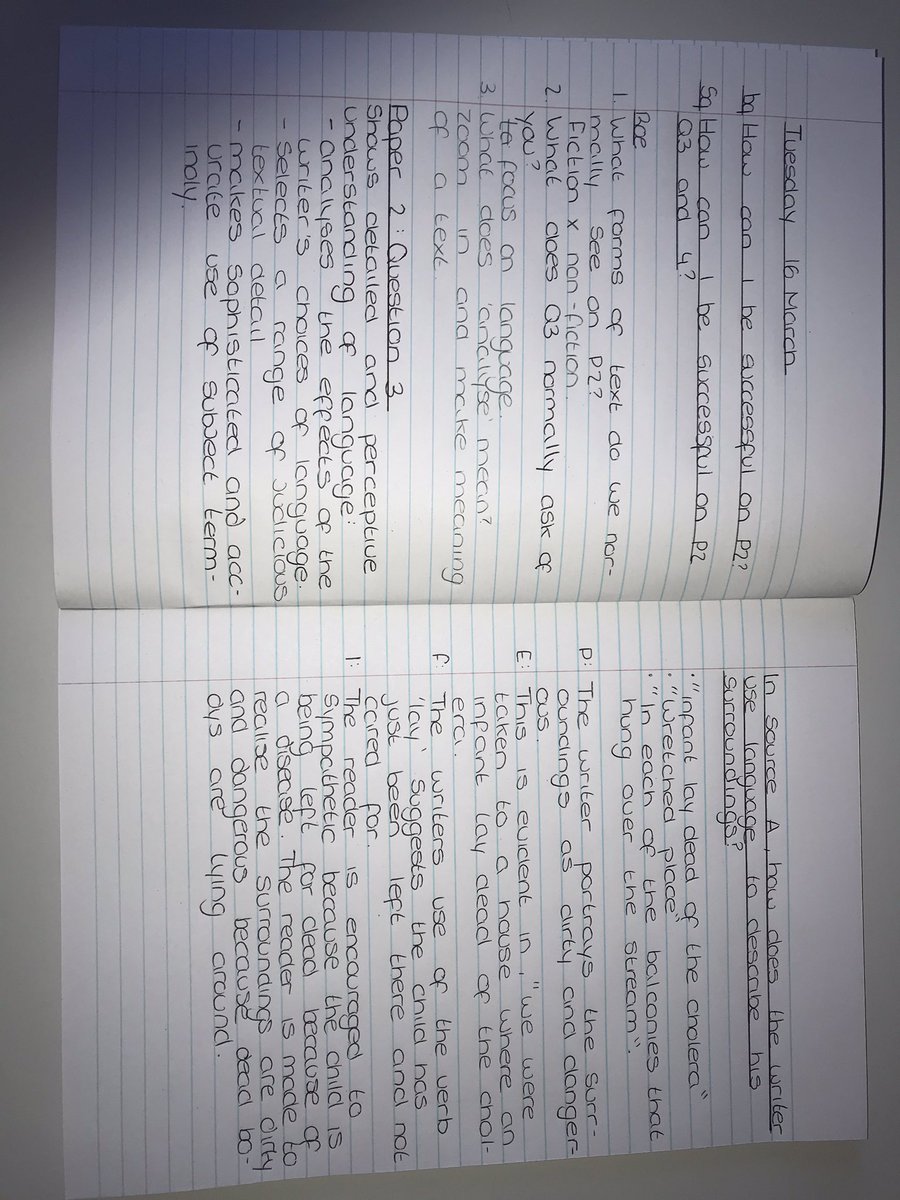 Tuesday 16 March
bq How can I be successful on P2?
Sq How can I be successful on P2
Q3 and 4?
Bee
1. What forms of text do we nor-
mally see on P2?
Fiction x non-fiction.
2. What does Q3 normally ask of
you?
to focus on language.
3. What does 'analyse' mean?
zoom in and make meaning
of a text.
Paper 2: Question 3
Shows detailed and perceptive
understanding of language:
- analyses the effects of the
writer's choices of language.
- Selects a range of judicious
textual detail
- makes sophisticated and acc-
urate use of subject term-
inoly.
In Source A, how does the writer
use language to describe his
surroundings?
• "infant lay dead of the cholera"
• "wretched place"
• "In each of the balconies that
hung over the stream".
P: The writer portrays the surr-
oundings as dirty and danger-
ous.
E: This is evident in, "we were
taken to a house where an
infant lay dead of the chol-
era.
F: The writers use of the verb
'lay' suggests the child has
just been left there and not
cared for.
I: The reader is encouraged to
sympathetic because the child is
being left for dead because of
a disease. The reader is made to
realise the surroundings are dirty
and dangerous because dead bo-
dys are lying around.